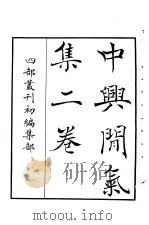 中興閒氣
集二卷
四部叢刊初編集部
mtoou.info